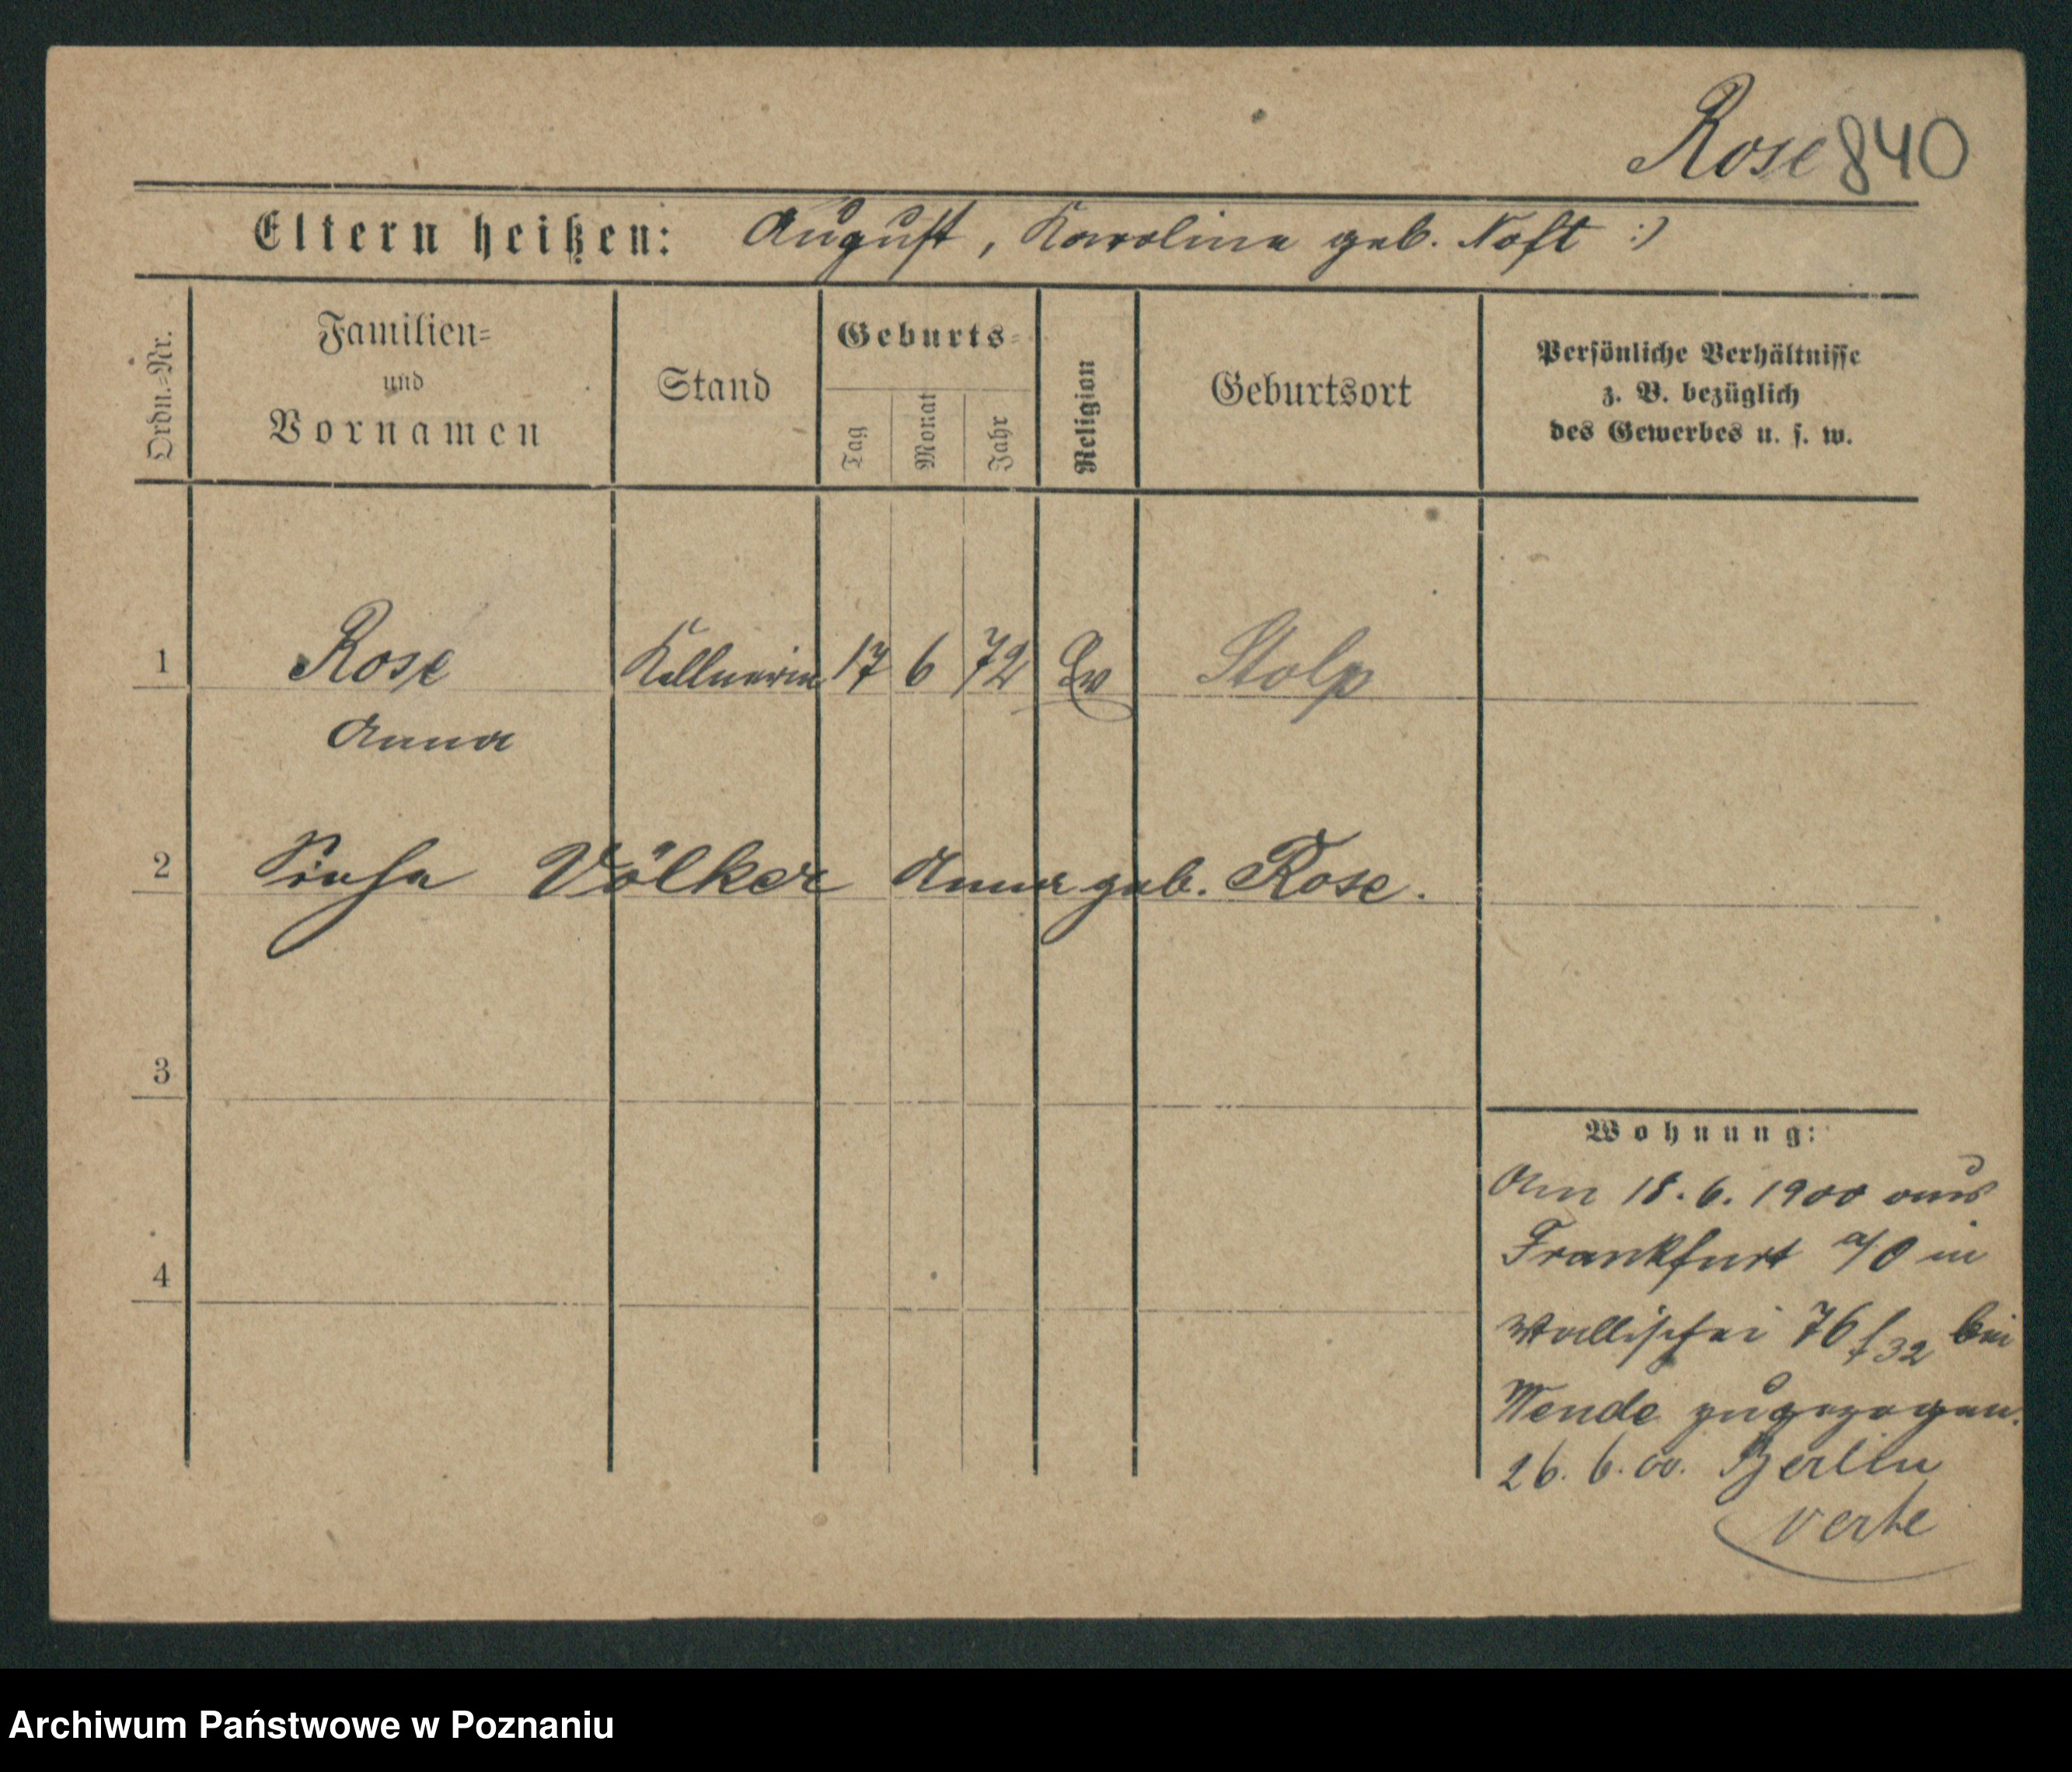 Rose 840
Eltern heißen: August, Karoline geb. Noft :)
Ordn.-Nr.
Familien-
und
Vornamen
Stand
Geburts-
Tag
Monat
Jahr
Religion
Geburtsort
Persönliche Verhältnisse
z. B. bezüglich
des Gewerbes u. s. w.
1 Rose Kellnerin 17 6 72 Ev Stolp
Anna
2 Siehe Völker Anna geb. Rose.
3
4
Wohnung:
Am 18. 6. 1900 aus
Frankfurt a/O in
Wallischei 76 f32 bei
Wende zugezogen.
26. 6. 00. Berlin
verte
Archiwum Państwowe w Poznaniu